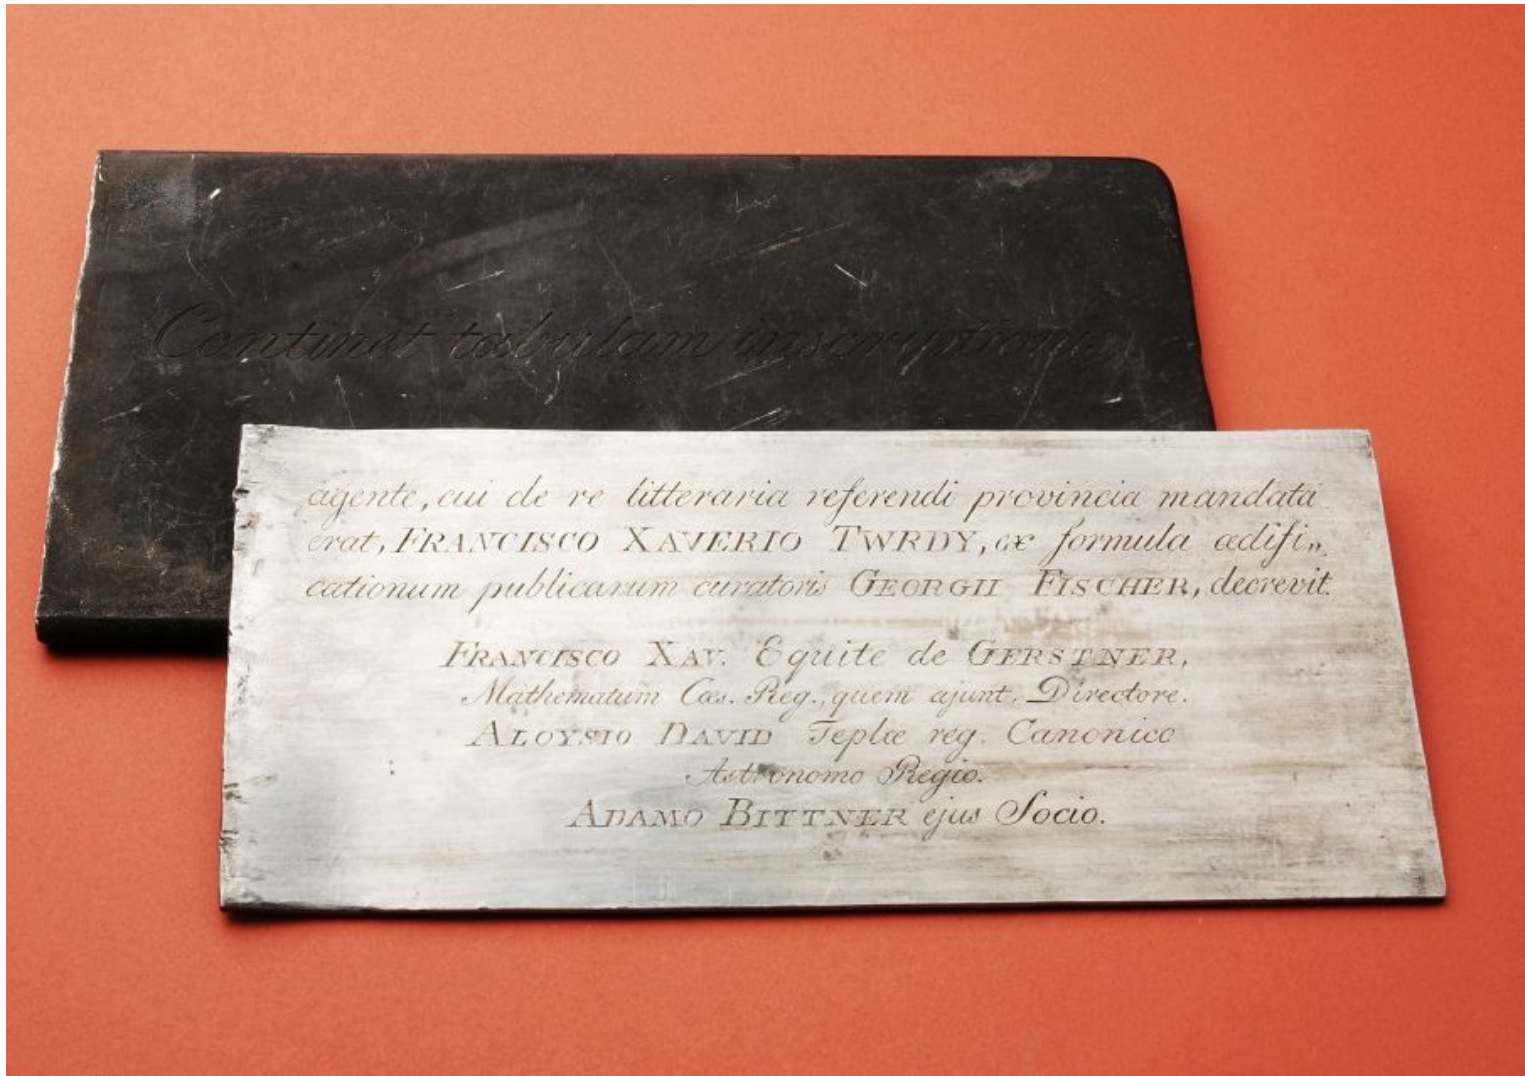 Continet tabulam inscriptioni
agente, cui de re litteraria referendi provincia mandata
erat, FRANCISCO XAVERIO TWRDY, ex formula ædifi„
cationum publicarum curatoris GEORGII FISCHER, decrevit.
FRANCISCO XAV. Equite de GERSTNER,
Mathematum Cæs. Reg., quem ajunt, Directore.
ALOYSIO DAVID Teplæ reg. Canonico
Astronomo Regio.
ADAMO BITTNER ejus Socio.